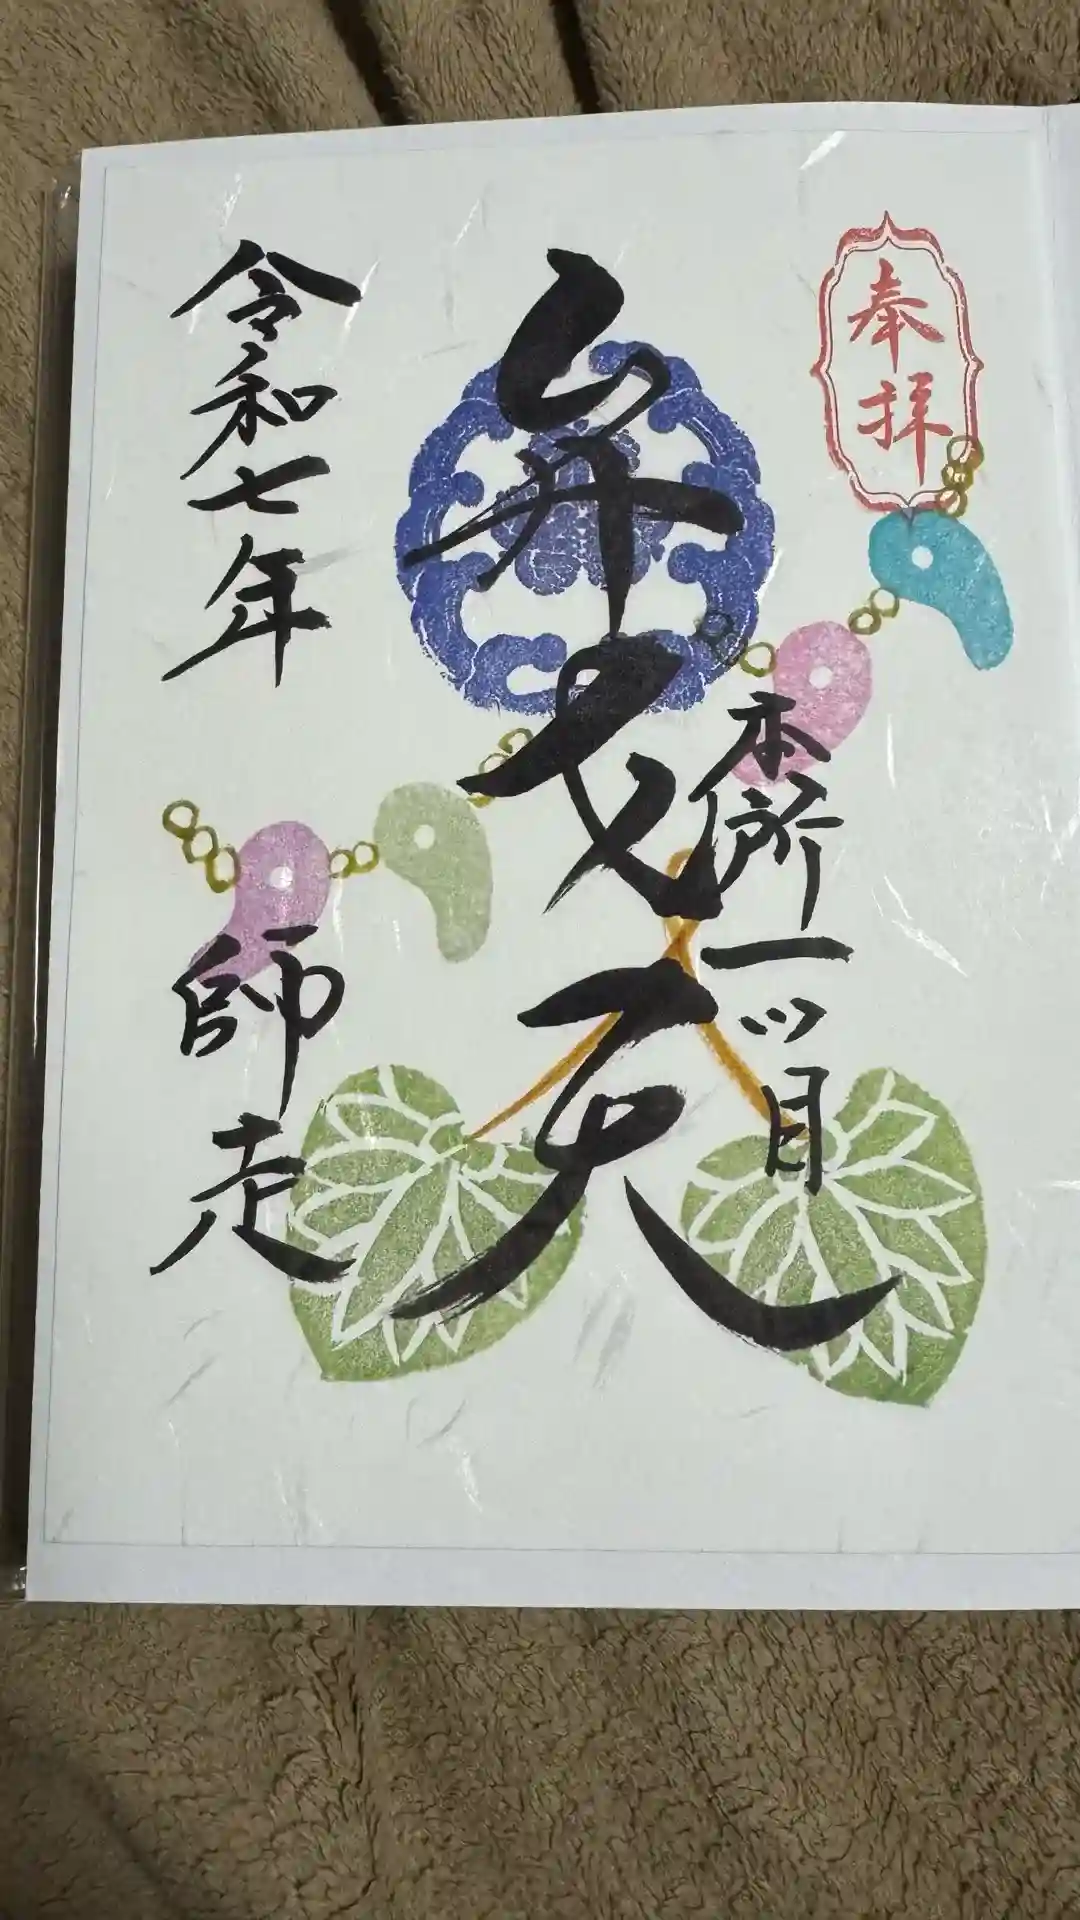 奉拝
本所一ッ目
弁才天
令和七年
師走